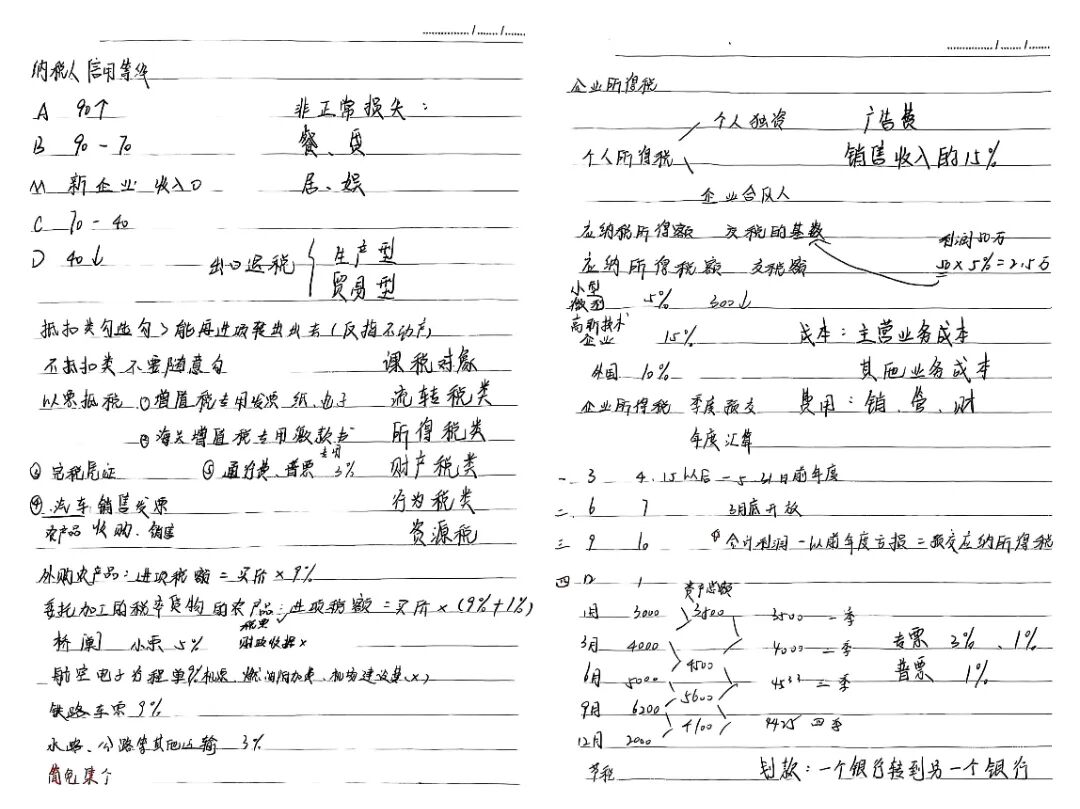 纳税人信用等级
A 90↑ 非正常损失:
B 90-70 餐、贷
M 新企业 收入0 居、娱
C 70-40
D 40↓ 出口退税 { 生产型
贸易型
抵扣类勾选勾>能再进项转出去(反指不动产)
不抵扣类 不要随意勾 课税对象
以票抵税 ①增值税专用发票 纸、电子 流转税类
②海关增值税专用缴款书 所得税类
③完税凭证 ⑤通行费、普票 3% 财产税类
专用
④汽车销售发票 行为税类
农产品 收购、销售 资源税
外购农产品:进项税额=买价×9%
委托加工的税率货物的农产品:进项税额=买价×(9%+1%)
税票✓
桥闸 小票 5% 财政收据×
航空电子行程单9%(机票、燃油附加费、机场建设费×)
铁路车票 9%
水路、公路等其他运输 3%
简电集个
企业所得税
个人独资 广告费
个人所得税 销售收入的15%
企业合伙人
应纳税所得额 交税的基数 利润50万
应纳所得税额 交税额 50×5%=2.5万
小型
微型 5% 300↓
高新技术
企业 15% 成本:主营业务成本
外国 10% 其他业务成本
企业所得税 季度预交 费用:销、管、财
年度汇算
一 3 4.15以后-5.31日前年度
二 6 7 3月底开放
三 9 10 会计利润-以前年度亏损=预交应纳所得税
四 12 1 资产总额
1月 3000 3500 3500 一季
3月 4000 4000 二季 专票 3%、1%
4500
6月 5000 4533 三季 普票 1%
5600
9月 6200 4425 四季
4100
12月 2000
节税 划款:一个银行转到另一个银行